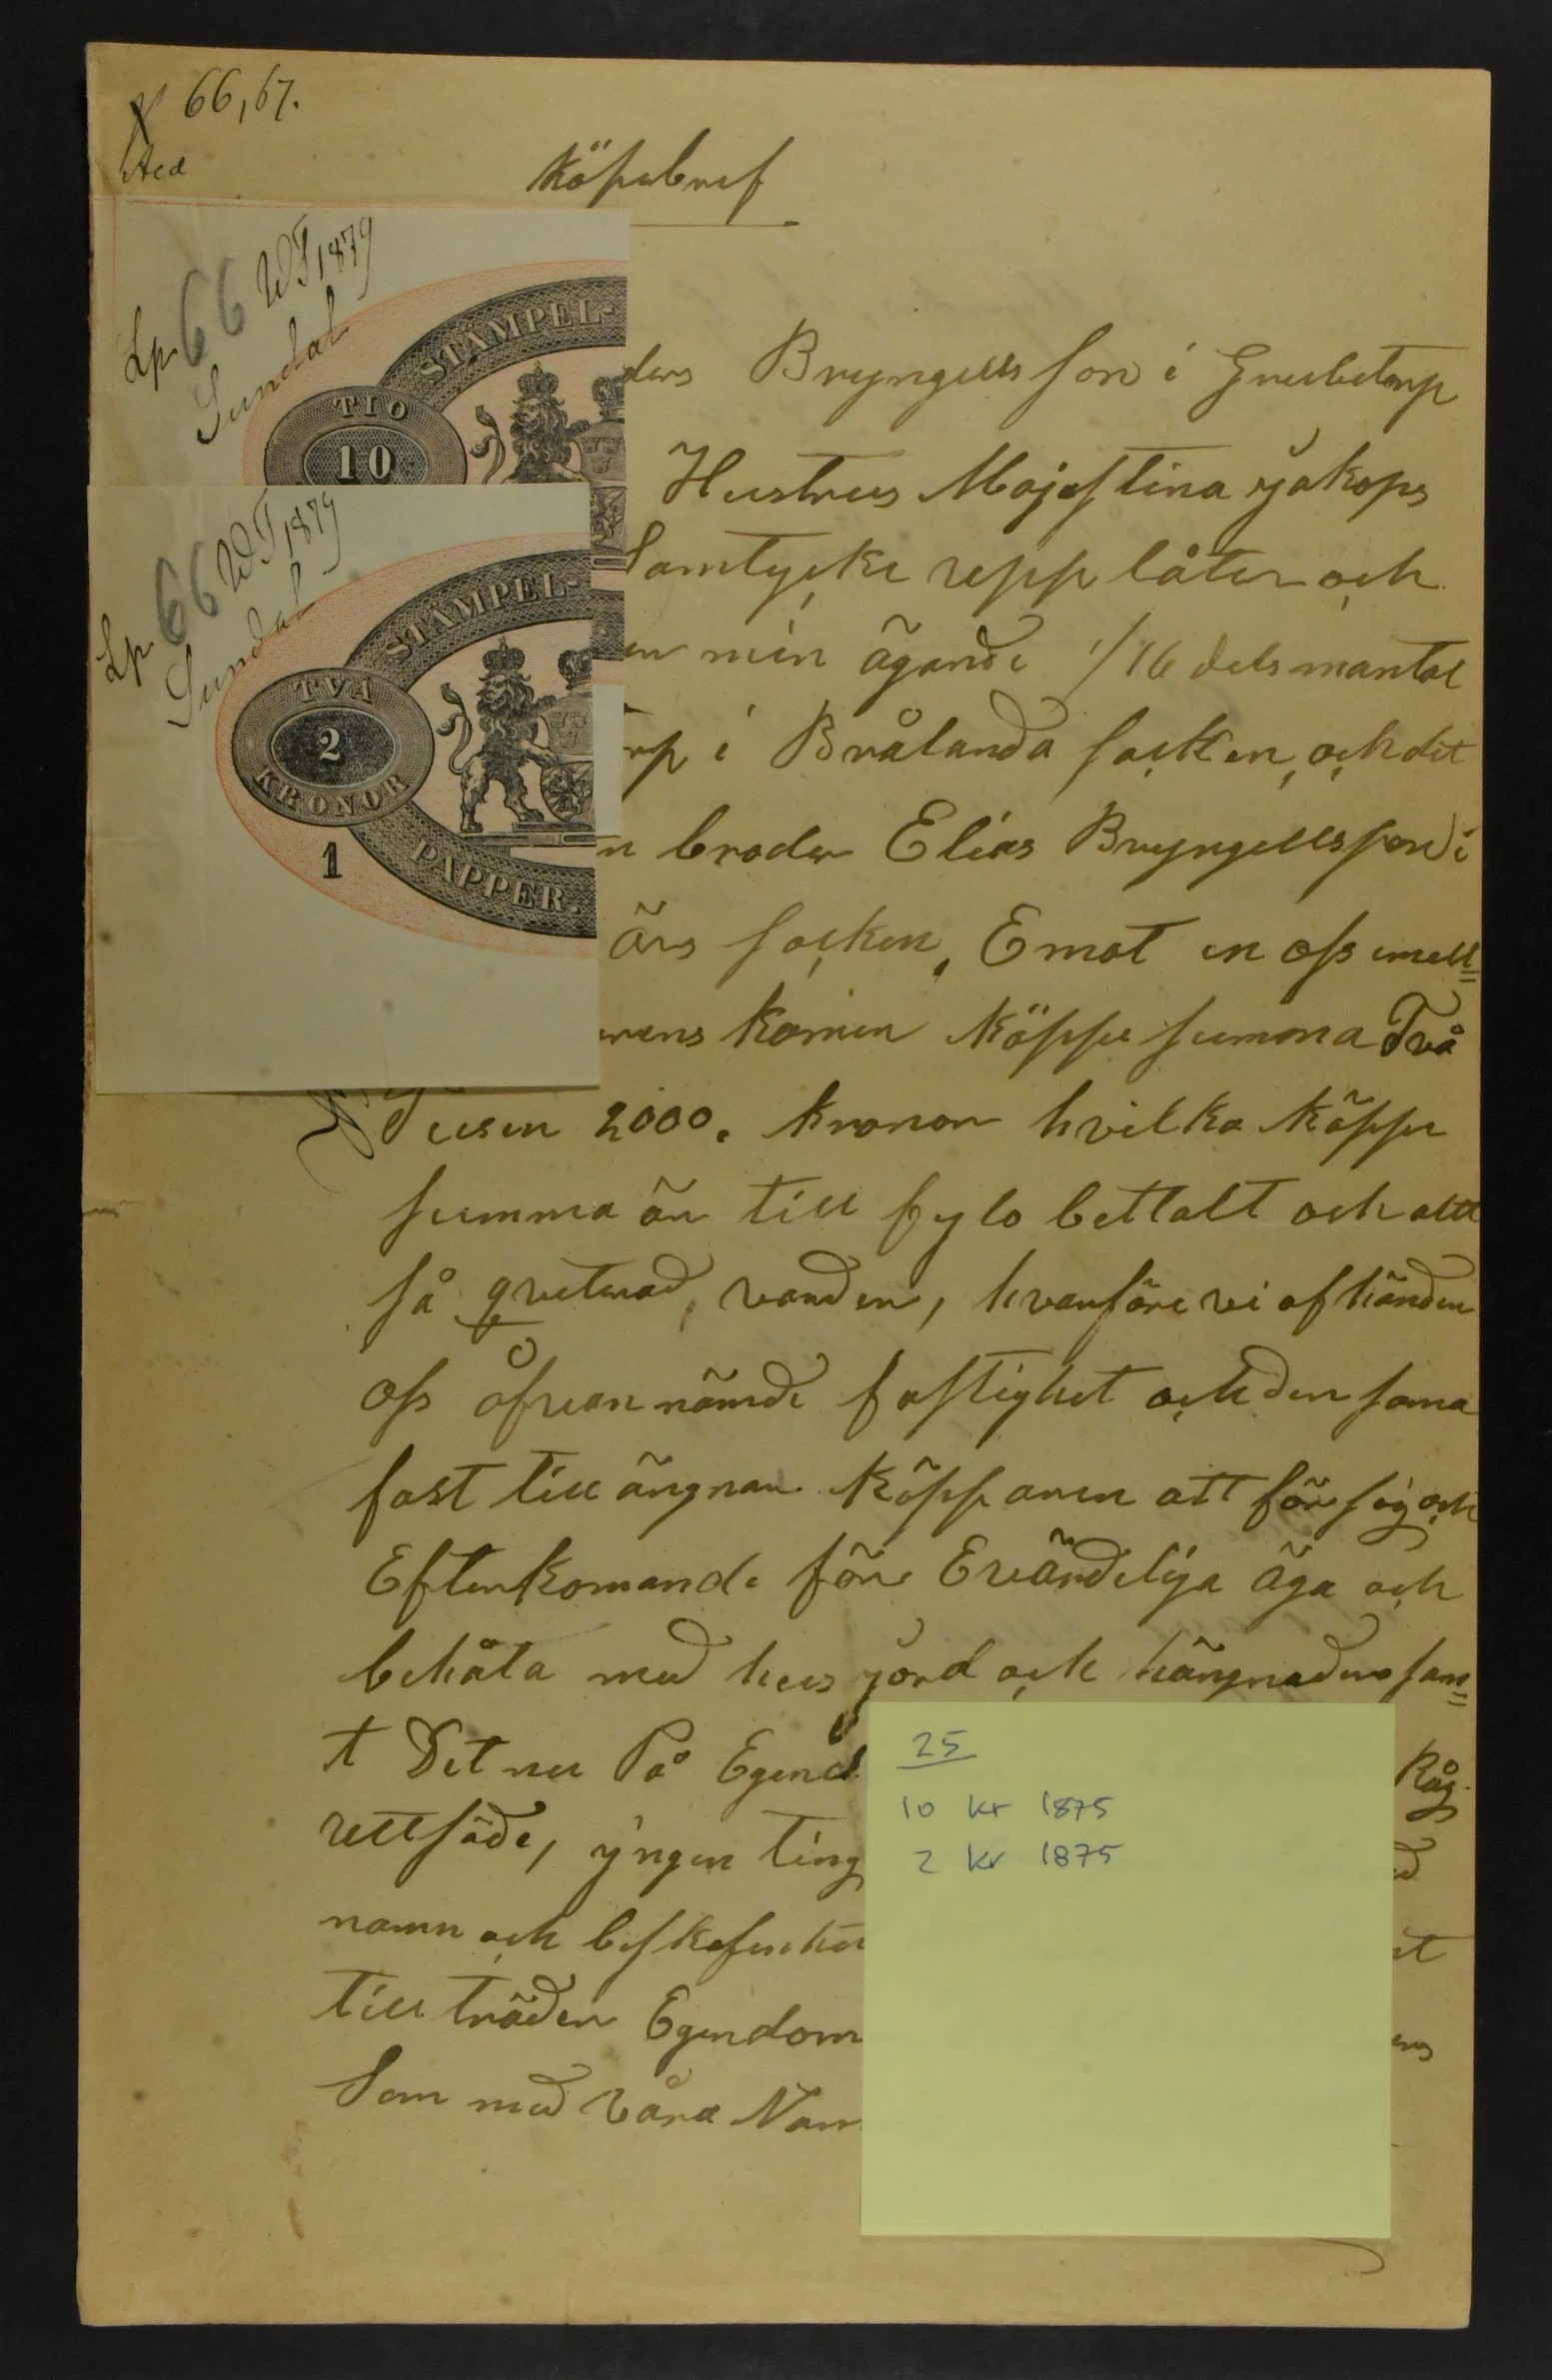 N 66, 67.
Köpebref
Lp 66 WT 1879
Sundal
STÄMPEL-
TIO
10
Lp 66 WT 1879
Sundal
STÄMPEL-
TVÅ
2
KRONOR
1
PAPPER.
ders Bryngellsson i
Hustrus Majastina jakops
Samtycke upp låter och
min ägande 1/16 dels mantal
rp i Brålanda socken, och det
n broder Elias Bryngellsson i
ärs socken, Emot en oss imell=
erens komen Köppe summa Två
Tusen 2000. kronor hvilka Köppe
summa är till fylo bettalt och altt
så qvitterad, varden, hvarföre vi afhänden
oss åfvan nämde fastighet och den sama
fast till ängnar Köpparen att för sig och
Efterkomande för Evärdeliga äga och
behåla med hus jord och hängnader sam=
t Det nu På Egend Råg
uttsäde, yngen ting
namn och beskafenhet
till träder Egendom
Som med våra Nam
25
10 kr 1875
2 kr 1875